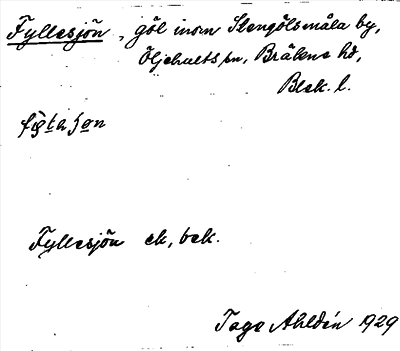 Fyllesjön, göl inom Stengölsmåla by,
Öljehults sn, Bräkne hd,
Blek. l.
Fyllesjön ek, bek.
Tage Ahldén 1929